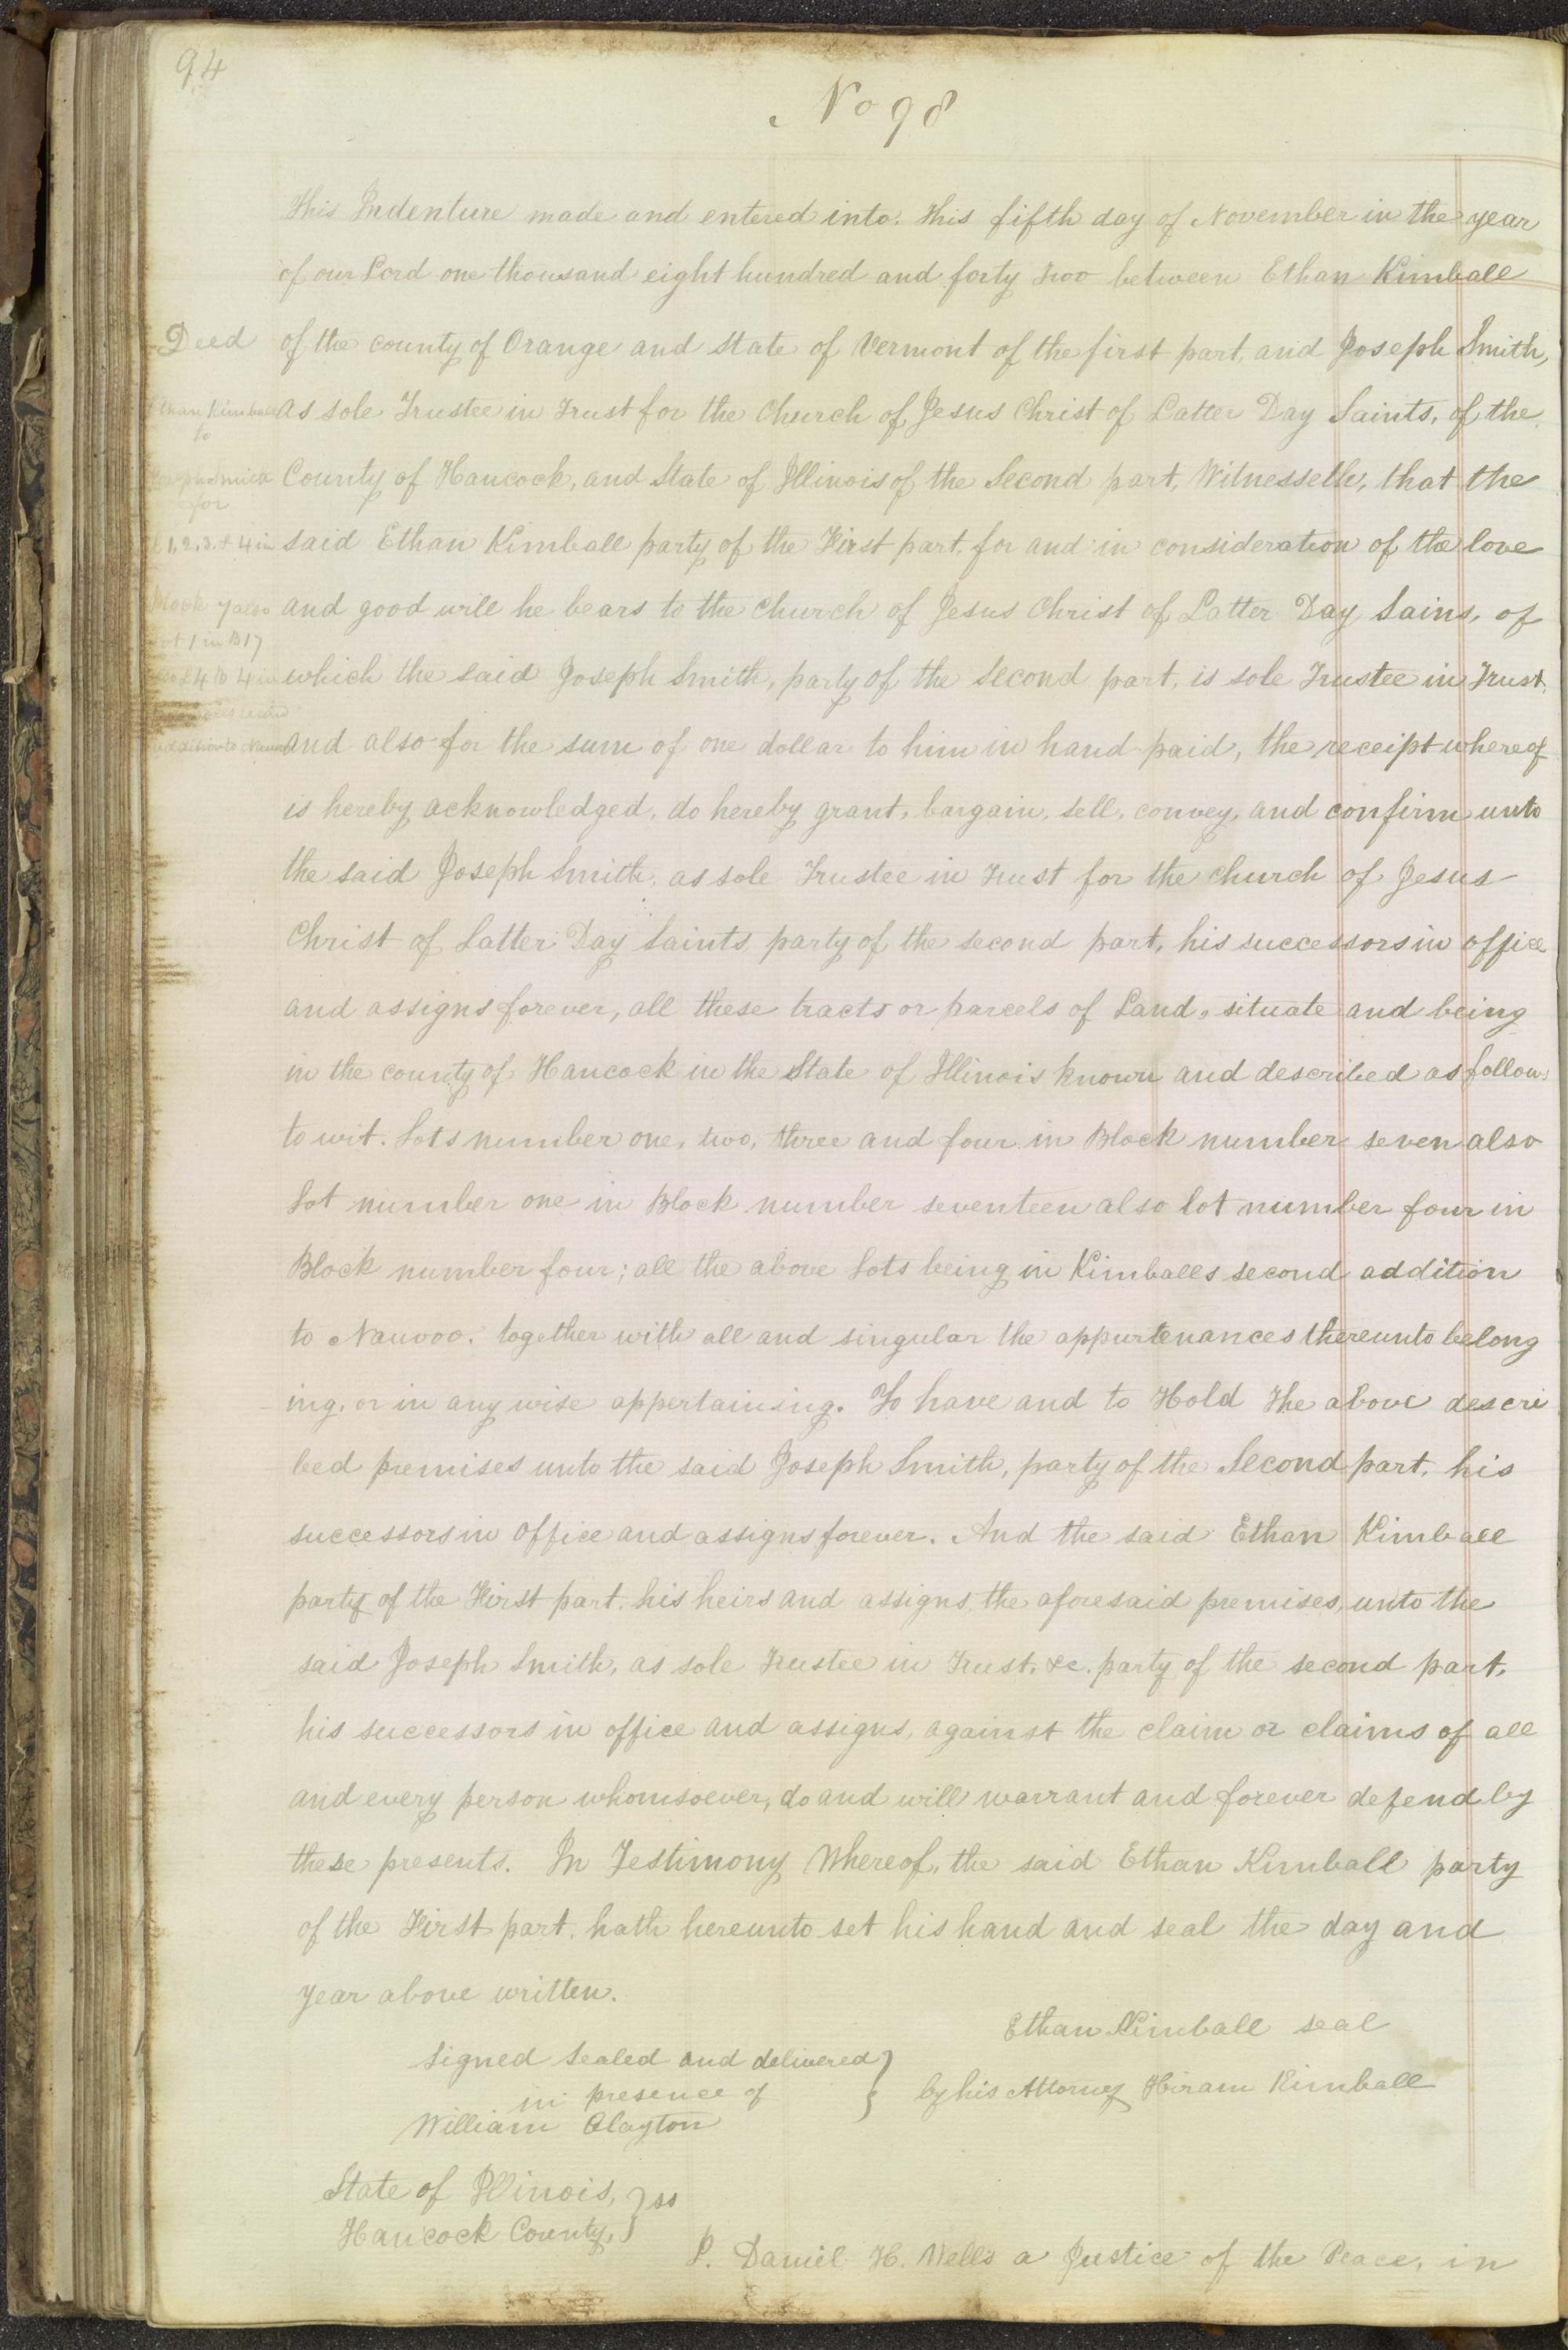 94
No 98
This Indenture made and entered into. This fifth day of November in the year
of our Lord one thousand eight hundred and forty two between Ethan Kimball
Deed
of the county of Orange and State of Vermont of the first part, and Joseph Smith,
Ethan Kimball
as sole Trustee in Trust for the Church of Jesus Christ of Latter Day Saints, of the
to
Joseph Smith
County of Hancock, and State of Illinois of the Second part, Witnesseth, that the
for
L 1, 2, 3, & 4 in
said Ethan Kimball party of the First part, for and in consideration of the love
Block 7 also
and good will he bears to the Church of Jesus Christ of Latter Day Sains, of
Lot 1 in B 17
also L 4 B 4 in
which the said Joseph Smith, party of the Second part, is sole Trustee in Trust,
addition to Nauvoo
and also for the sum of one dollar to him in hand paid, the receipt whereof
is hereby acknowledged, do hereby grant, bargain, sell, convey, and confirm unto
the said Joseph Smith, as sole Trustee in Trust for the church of Jesus
Christ of Latter Day Saints party of the second part, his successors in office
and assigns forever, all these tracts or parcels of Land, situate and being
in the county of Hancock in the State of Illinois known and described as follows
to wit. Lots number one, two, three and four in Block number seven also
Lot number one in Block number seventeen also lot number four in
Block number four; all the above Lots being in Kimballs second addition
to Nauvoo. together with all and singular the appurtenances thereunto belong
ing, or in any wise appertaining. To have and to Hold The above descri
bed premises unto the said Joseph Smith, party of the Second part, his
successors in office and assigns forever. And the said Ethan Kimball
party of the First part, his heirs and assigns, the aforesaid premises, unto the
said Joseph Smith, as sole Trustee in Trust, &c. party of the second part,
his successors in office and assigns, against the claim or claims of all
and every person whomsoever, do and will warrant and forever defend by
these presents. In Testimony Whereof, the said Ethan Kimball party
of the First part, hath hereunto set his hand and seal the day and
year above written.
Ethan Kimball seal
Signed Sealed and delivered }
in presence of }
by his Attorney Hiram Kimball
William Clayton
State of Illinois, } ss
Hancock County, }
I. Daniel H. Wells a Justice of the Peace, in